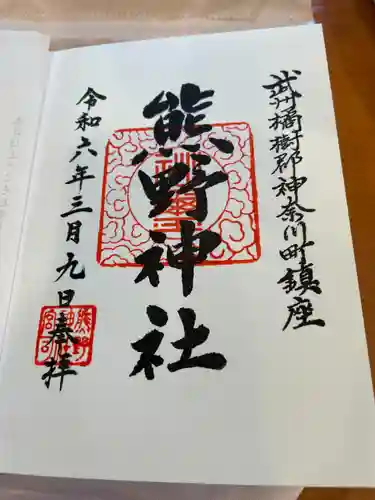 武州橘樹郡神奈川町鎮座
熊野神社
令和六年三月九日奉拝